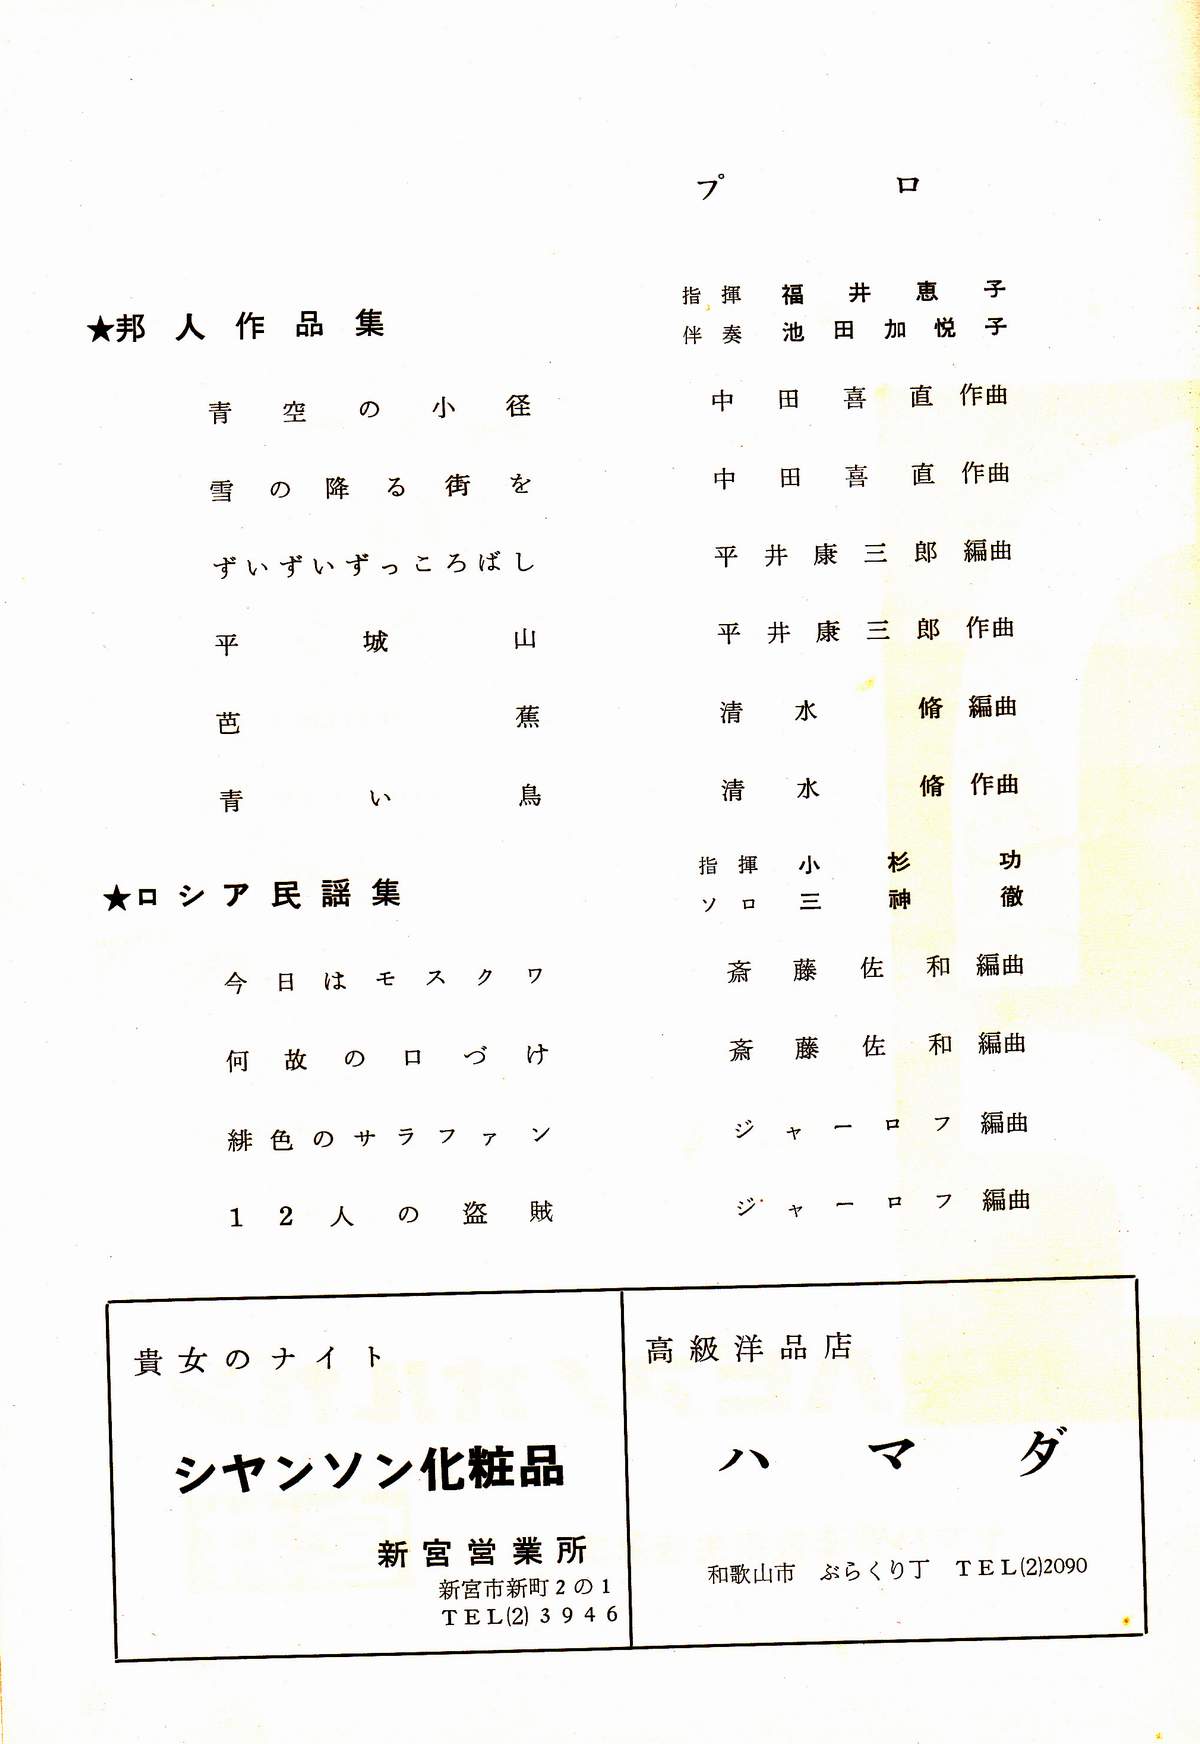 プロ
★邦人作品集
指揮 福井恵子
伴奏 池田加悦子
青空の小径 中田喜直 作曲
雪の降る街を 中田喜直 作曲
ずいずいずっころばし 平井康三郎 編曲
平城山 平井康三郎 作曲
芭蕉 清水脩 編曲
青い鳥 清水脩 作曲
★ロシア民謡集
指揮 小杉功
ソロ 三神徹
今日はモスクワ 斎藤佐和 編曲
何故の口づけ 斎藤佐和 編曲
緋色のサラファン ジャーロフ 編曲
12人の盗賊 ジャーロフ 編曲
貴女のナイト
シヤンソン化粧品
新宮営業所
新宮市新町2の1
TEL(2)3946
高級洋品店
ハマダ
和歌山市 ぶらくり丁 TEL(2)2090